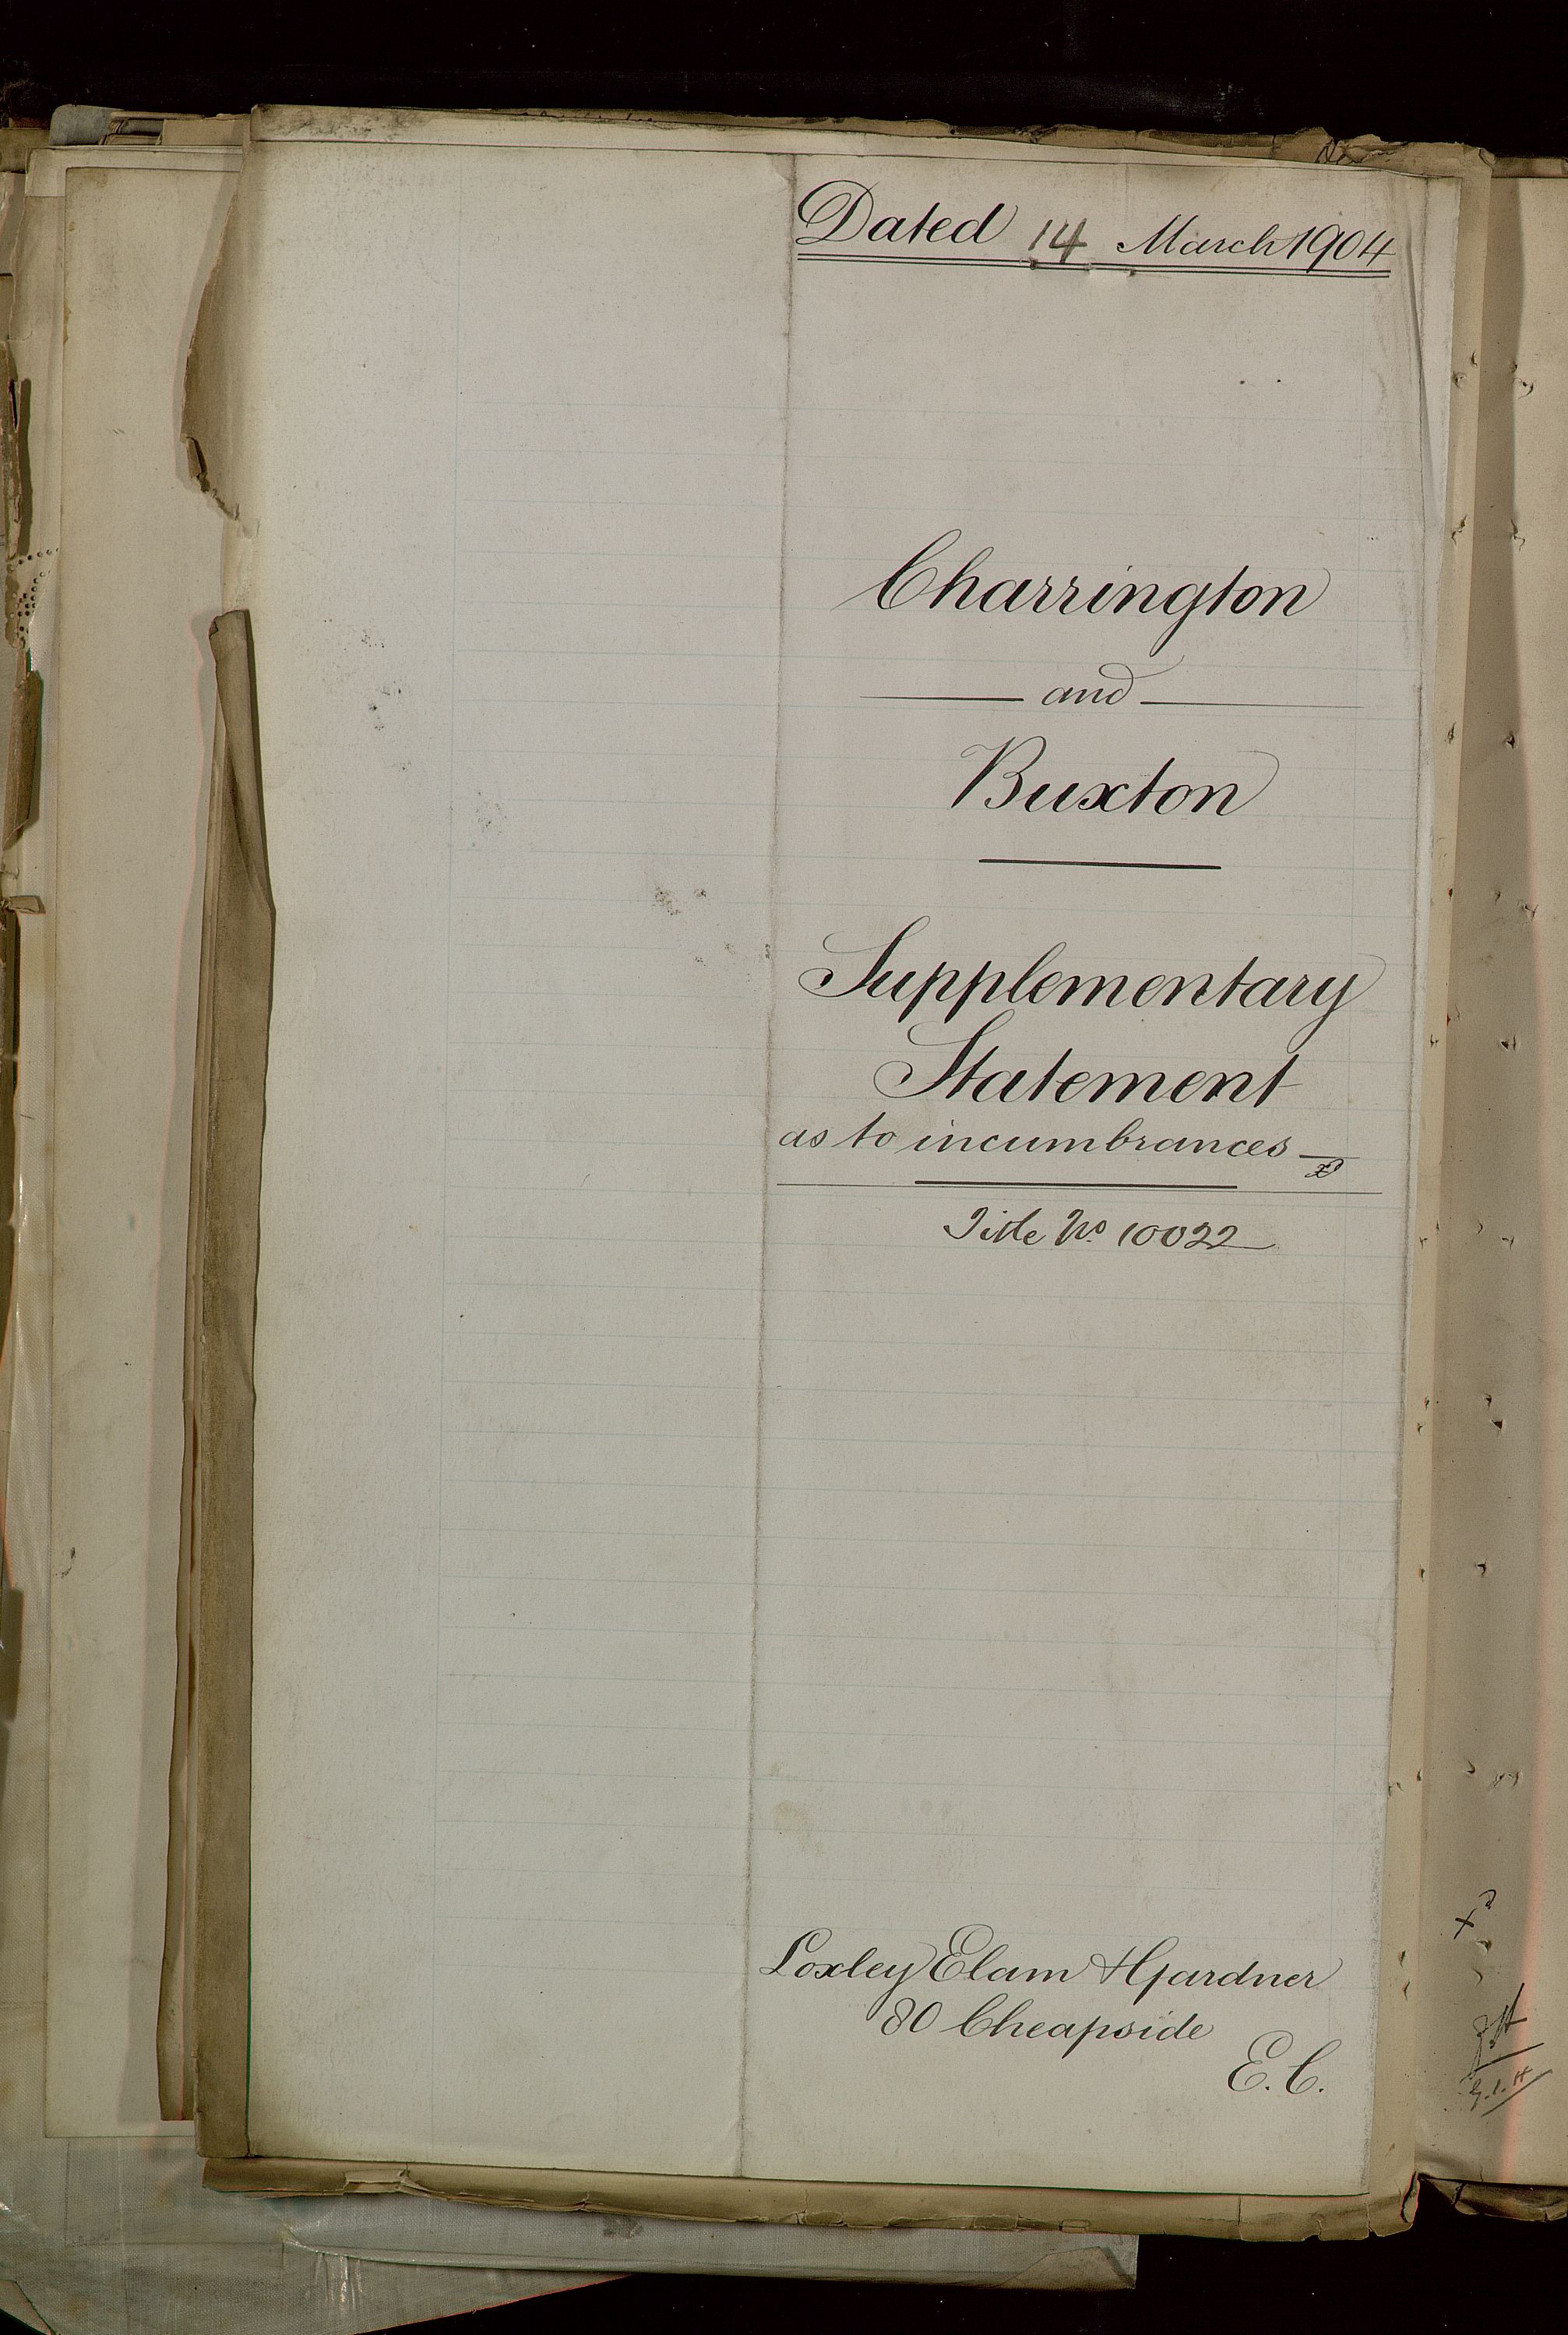 Dated 14 March 1904
Charrington
and
Buxton
Supplementary
Statement
as to incumbrances
Title No 10022
Loxley Elam & Gardner
80 Cheapside
E.C.